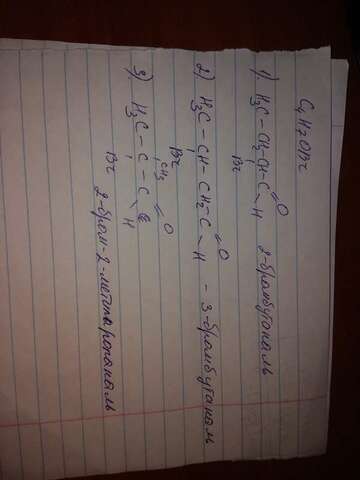 C4H7OBr
1). H3C-CH2-CH-C=O H 2-бромбутаналь
Br
2) H3C-CH-CH2-C=O H - 3-бромбутаналь
Br
CH3
3). H3C-C-C=O H
Br 2-бром-2-метилпропаналь